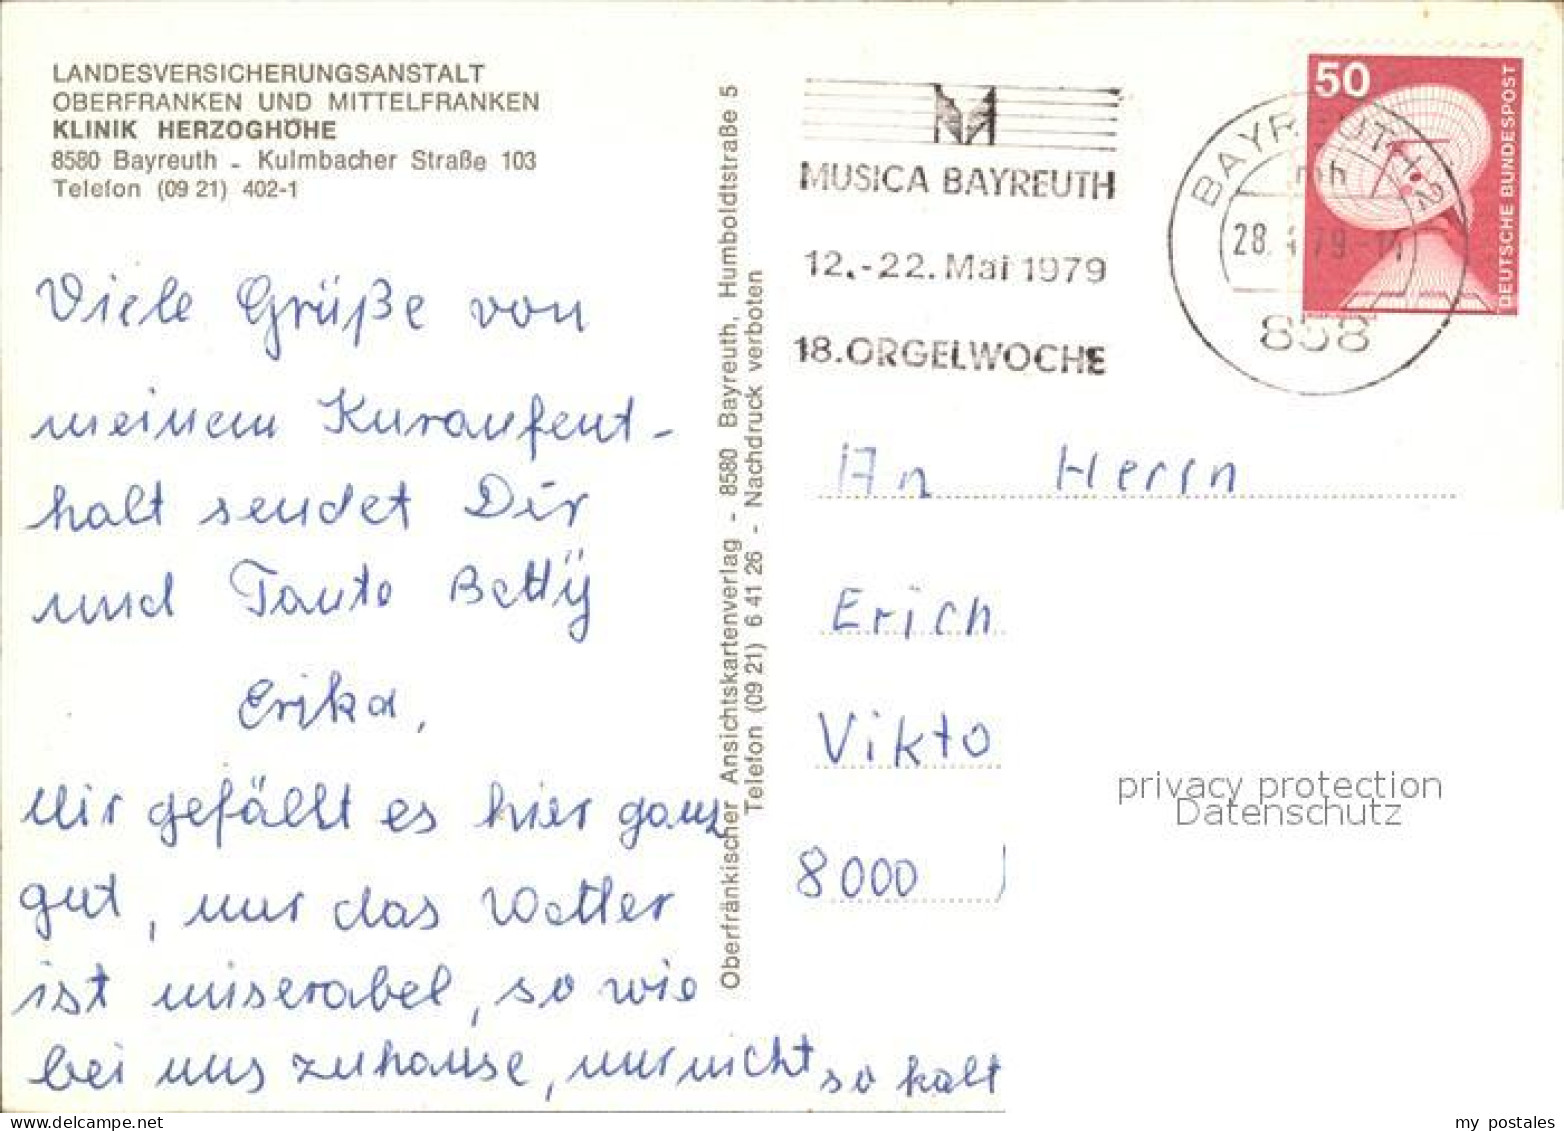 LANDESVERSICHERUNGSANSTALT
OBERFRANKEN UND MITTELFRANKEN
KLINIK HERZOGHÖHE
8580 Bayreuth - Kulmbacher Straße 103
Telefon (09 21) 402-1
Viele Grüße von
meinem Kuraufent-
halt sendet Dir
und Tante Betty
Erika,
Mir gefällt es hier ganz
gut, nur das Wetter
ist miserabel, so wie
bei uns zuhause, nur nicht so kalt
Oberfränkischer Ansichtskartenverlag - 8580 Bayreuth, Humboldtstraße 5
Telefon (09 21) 6 41 26 - Nachdruck verboten
MUSICA BAYREUTH
12.-22. Mai 1979
18. ORGELWOCHE
BAYREUTH 2
mh
28. 79-
858
50
DEUTSCHE BUNDESPOST
An Herrn
Erich
Vikto
8000
privacy protection
Datenschutz
my postales